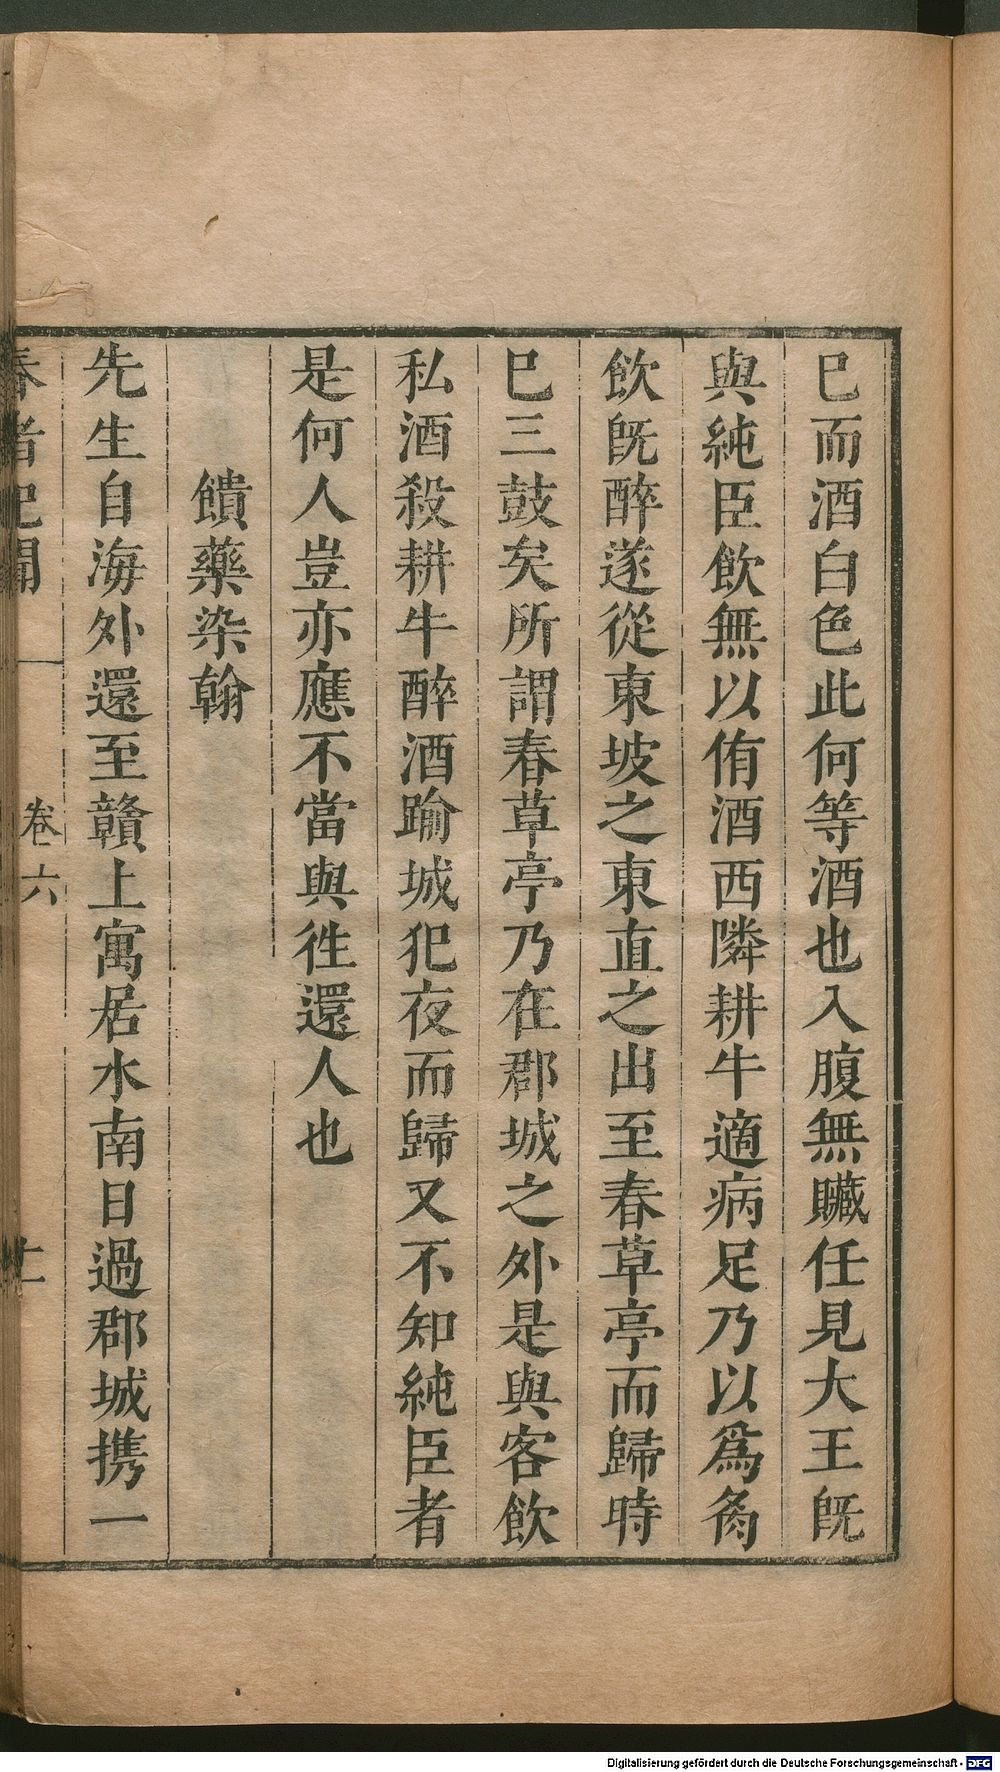 已而酒白色此何等酒也入腹無贓任見大王旣
與純臣飲無以侑酒西隣耕牛適病足乃以爲胾
飲旣醉遂從東坡之東直之出至春草亭而歸時
已三鼓矣所謂春草亭乃在郡城之外是與客飲
私酒殺耕牛醉酒踰城犯夜而歸又不知純臣者
是何人豈亦應不當與徃還人也
饋藥染翰
先生自海外還至贛上寓居水南日過郡城携一
春渚紀聞
卷六
Digitalisierung gefördert durch die Deutsche Forschungsgemeinschaft - DFG